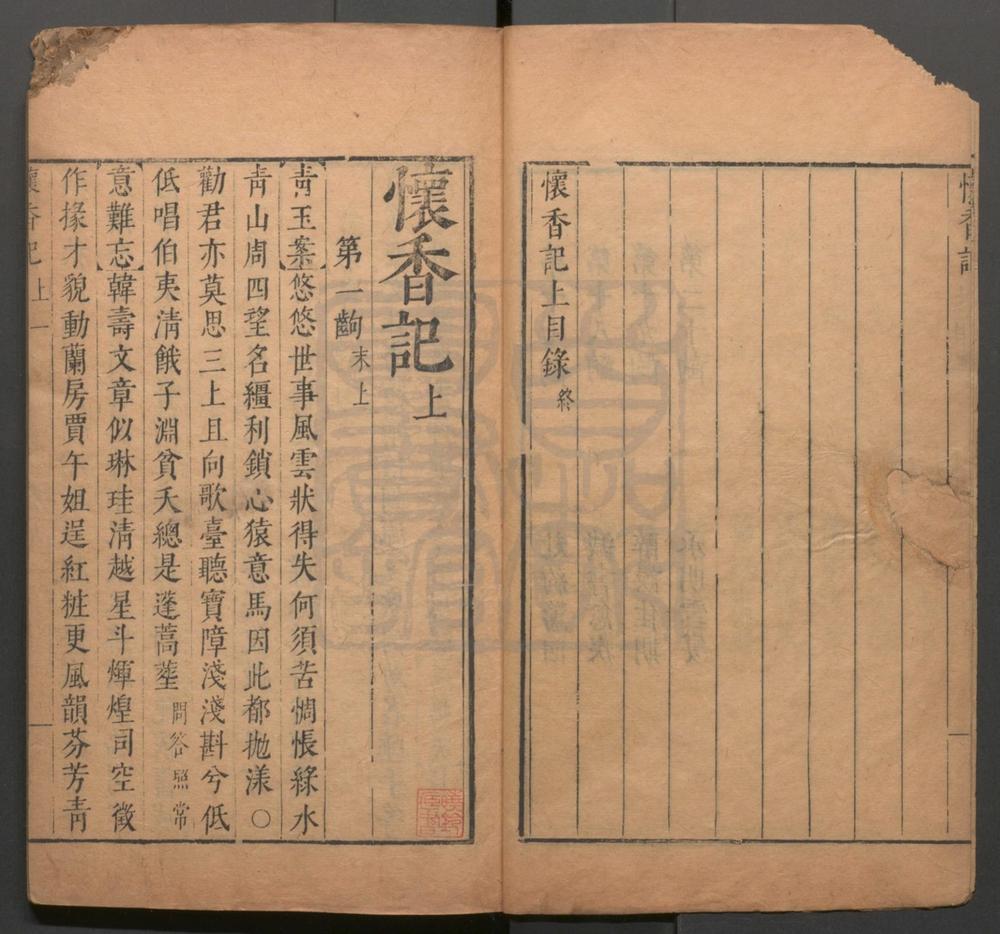 懷香記上目錄 終
懷香記上
第一齣 末上
【青玉案】悠悠世事風雲狀得失何須苦惆悵綠水
青山周四望名繮利鎖心猿意馬因此都抛漾○
勸君亦莫思三上且向歌臺聽寶障淺淺斟兮低
低唱伯夷清餓子淵貧夭總是蓬蒿塟 問答照常
【意難忘】韓壽文章似琳珪清越星斗煇煌司空徵
作掾才貌動蘭房賈午姐逞紅粧更風韻芬芳青
懷香記 上 一